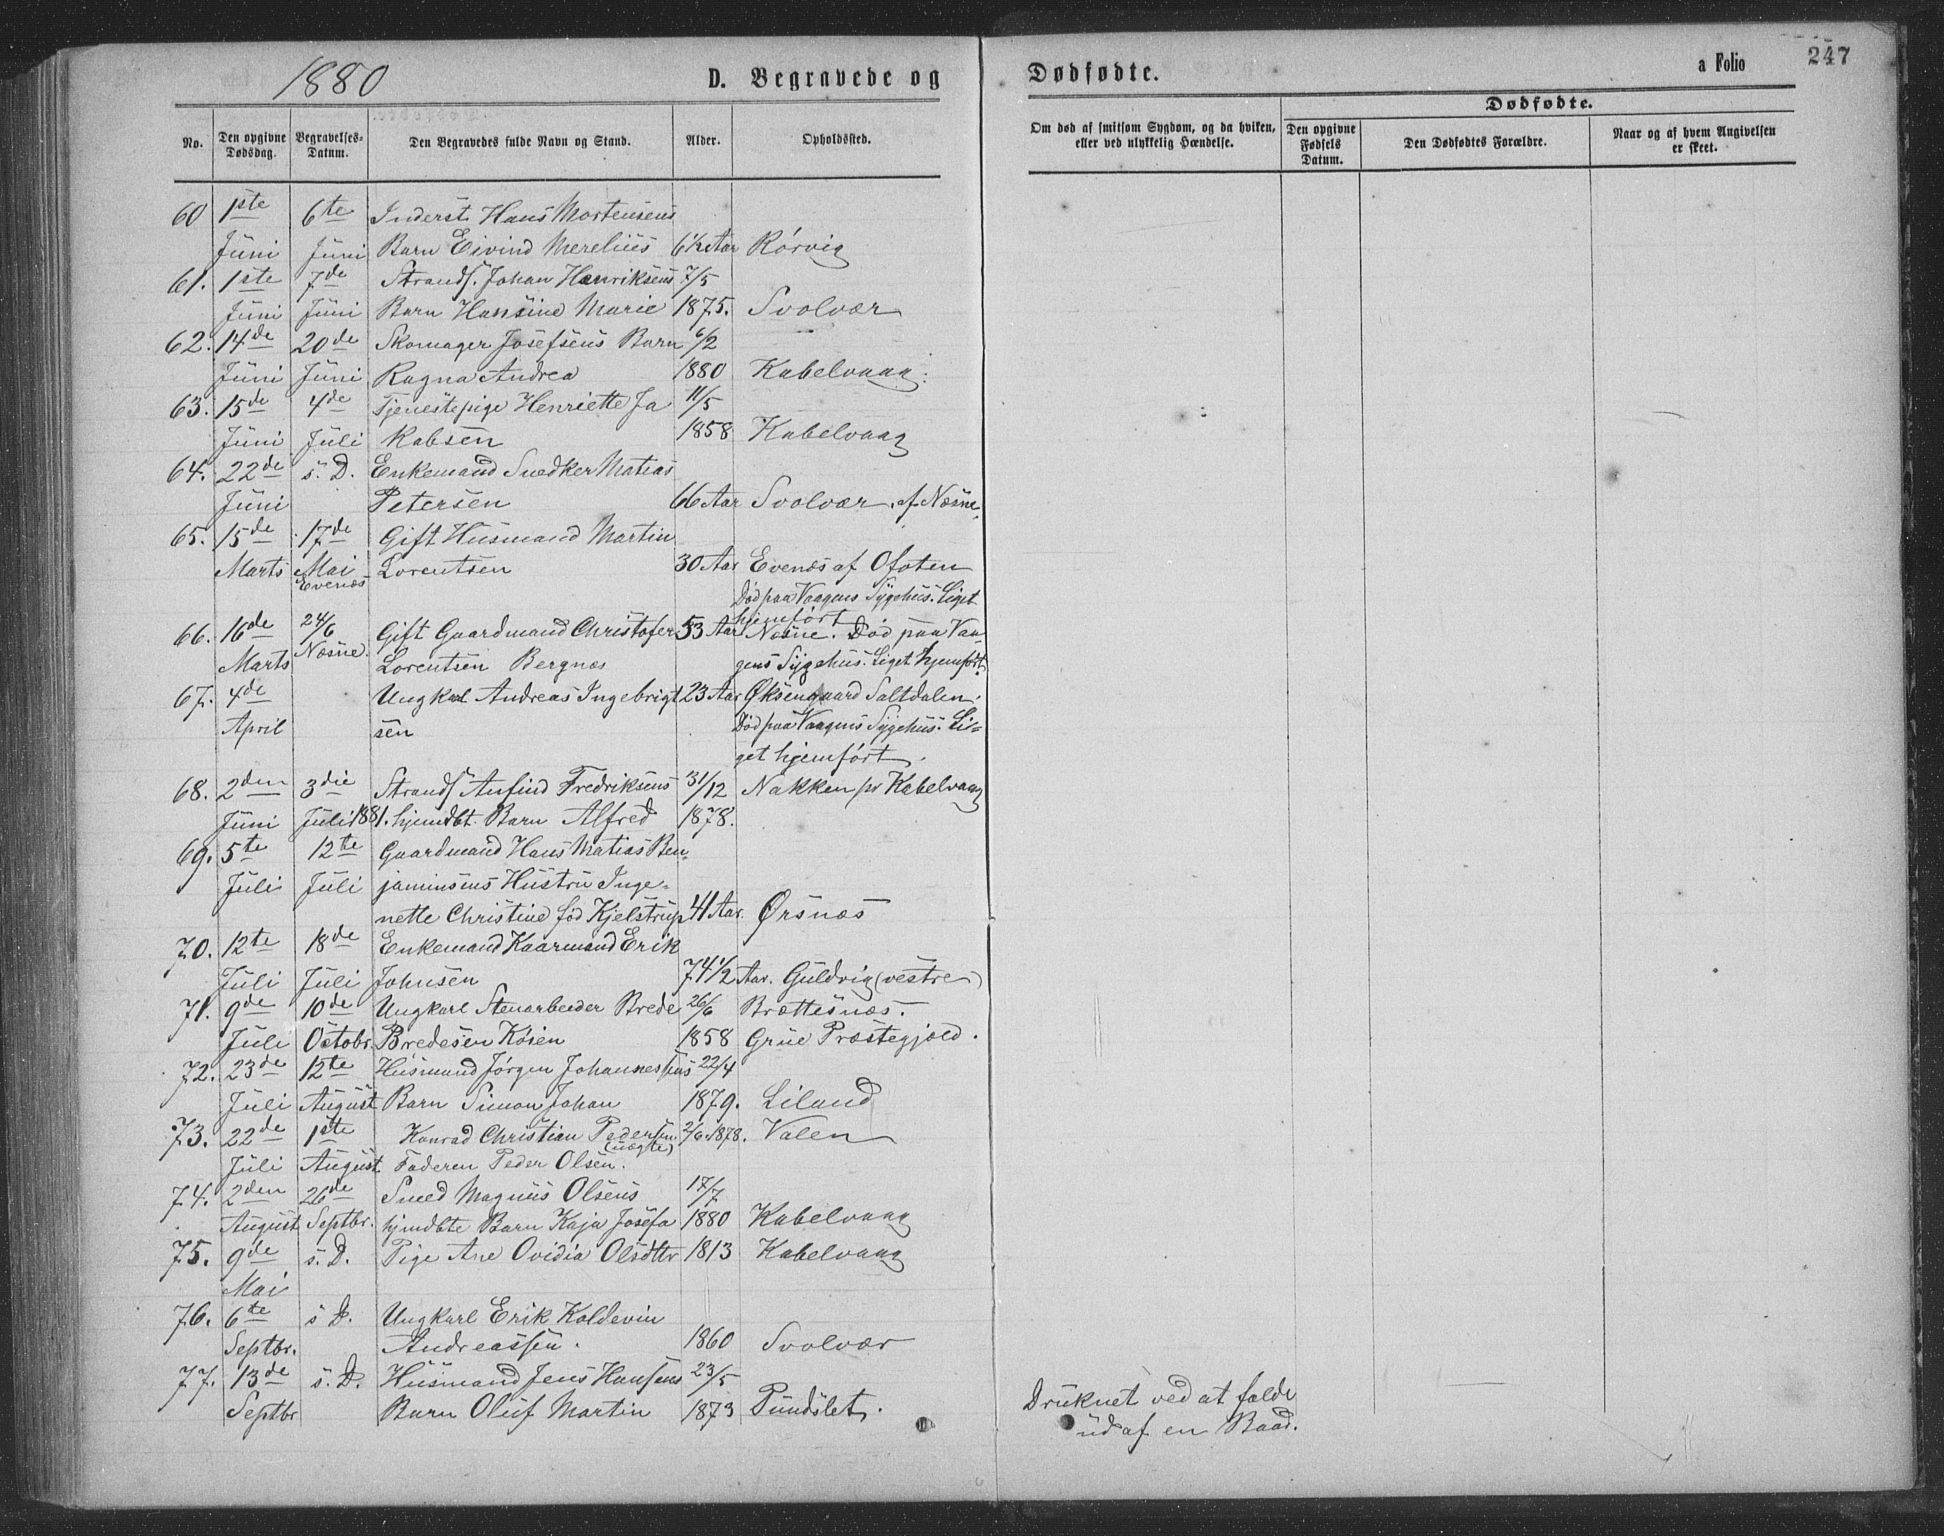 1880
D. Begravede og Dødfødte.
a Folio 247
No.
Den opgivne Dødsdag.
Begravelses-Datum.
Den Begravedes fulde Navn og Stand.
Alder.
Opholdssted.
Om død af smitsom Sygdom, og da hviken, eller ved ulykkelig Hændelse.
Dødfødte.
Den opgivne Fødsels Datum.
Den Dødfødtes Forældre.
Naar og af hvem Angivelsen er skeet.
60 1ste 6te Inderst Hans Mortensens
Juni Juni Barn Eivind Merelius 6½ Aar Rørvig
61. 1ste 7de Strands. Johan Henriksens 7/5
Juni Juni Barn Hansine Marie 1875. Svolvær
62. 14de 20de Skomager Josefsens Barn 6/2
Juni Juni Ragna Andrea 1880 Kabelvaag.
63. 15de 4de Tjenestepige Henriette Ja 11/5
Juni Juli kobsen 1858 Kabelvaag
64. 22de s. D. Enkemand Snedker Matias
Juni Petersen 66 Aar Svolvær, af Næsne.
65. 15de 17de Gift Husmand Martin
Marts Mai Lorentsen 30 Aar Evenæs af Ofoten
Evenæs
Død paa Vaagens Sygehus. Liget
hjemført
66. 16de 24/6 Gift Gaardmand Christofer 53 Aar Næsne. Død paa Vaa-
Marts Næsne. Lorentsen Bergnæs gens Sygehus. Liget hjemført.
67. 4de Ungkarl Andreas Ingebrigt 23 Aar Øksengaard Saltdalen.
April sen Død paa Vaagens Sygehus. Li-
get hjemført.
68. 2den 3die Strands Anfind Fredriksens 31/12 Nakken pr Kabelvaag
Juni Juli 1881. hjemdbt. Barn Alfred 1878.
69. 5te 12te Gaardmand Hans Matias Ben-
Juli Juli jaminsens Hustru Inge-
nette Christine fød Kjelstrup 41 Aar. Ørsnæs
70. 12te 18de Enkemand Kaarmand Erik
Juli Juli Johnsen 74½ Aar. Guldvig (vestre)
71. 9de 10de Ungkarl Stenarbeider Brede 26/6 Brættesnæs.
Juli Octobr. Bredesen Kösen 1858 Grue Præstegjæld.
72. 23de 12te Husmand Jørgen Johannessens 22/4
Juli August Barn Simon Johan 1879. Liland
73. 22de 1ste Konrad Christian Pedersen 2/6 1878. Valen
(uægte)
Juli August Faderen Peder Olsen.
74. 2den 26de Smed Magnus Olsens 17/7
August Septbr. hjmdbte Barn Kaja Josefa 1880 Kabelvaag
75. 9de s. D. Pige Ane Ovidia Olsdttr 1813 Kabelvaag
Mai
76. 6te s D. Ungkarl Erik Koldevin
Septbr. Andreassen. 1860 Svolvær
77. 13de s. D. Husmand Jens Hansens 23/5
Septbr Barn Oluf Martin 1873 Pundslet. Druknet ved at falde
ud af en Baad.